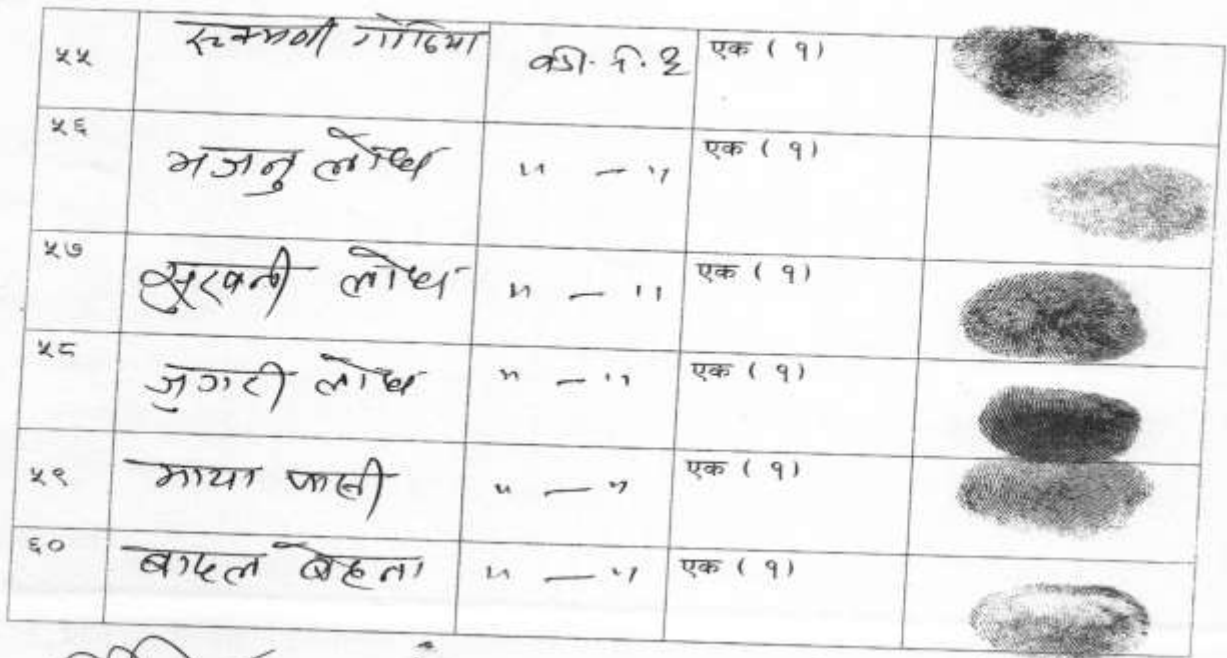 ५५ रूकमणी गोडिया एक ( १)
५६ मजनु लोध " — " एक ( १)
५७ सुरपती लोध " — " एक ( १)
५८ जुगरी लोध " — " एक ( १)
५९ माया पासी " — " एक ( १)
६० बादल बेहना " — " एक ( १)